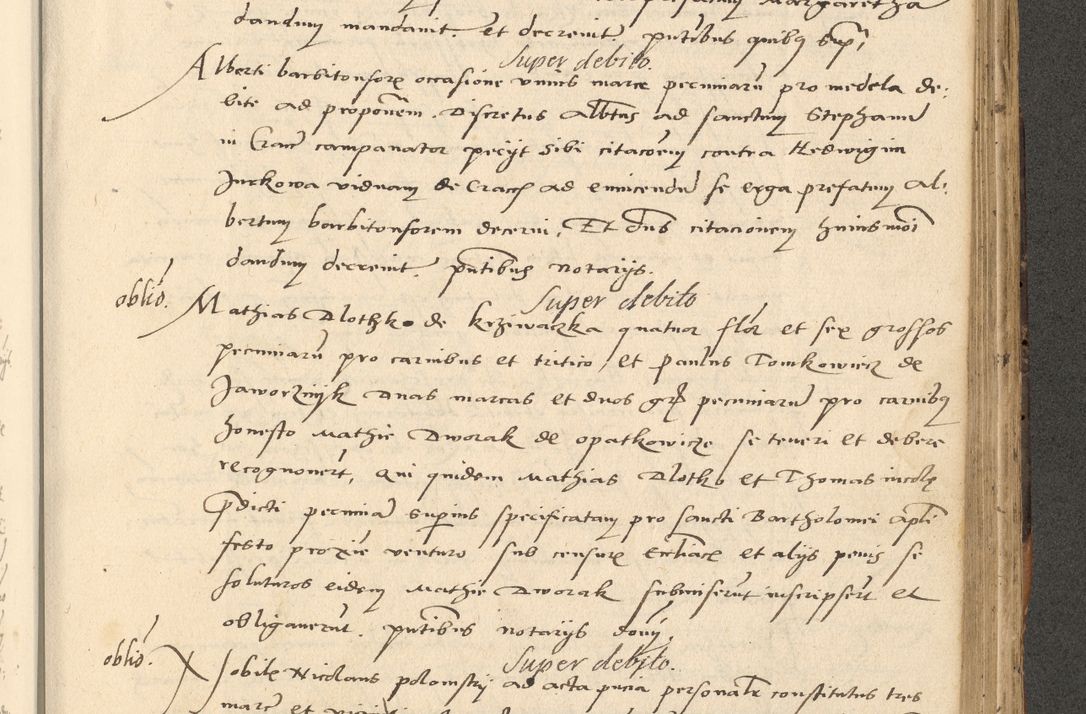 Margaretha
dandum mandavit. Et decrevit. pntibus quibus supra
Super debito.
Alberti barbitonsore occasione unius marce pecuniarum pro medela de:
bite ad proponem. Discretus Albtus ad sanctum Stephanum
in Crac campanator pecijt sibi citacoem contra Hedwigim
Jurkowa viduam de Crac ad evincendum se erga prefatum Al:
bertum barbitonsorem decerni, Et dns citacionem huiusmoi
dandum decrevit. pntibus notarijs.
Super debito
oblio. Mathias Dlothko de krziwaczka quatuor flor et sex grossos
pecuniarum pro carnibus et tritico, et Paulus Tomkowicz de
Jaworznijk duas marcas et duos gr pecuniarum pro carnibus
honesto Mathie Dworak de opatkowicze se teneri et debere
recognoverunt, Qui quidem Mathias Dlotko et Thomas incole
pdicti pecuniam superius specificatam pro sancti Bartholomei apli
festo proxime venturo sub censure Eccliace et alijs penis se
soluturos eidem Mathie Dworak submiserunt inscripserunt et
obligaverunt. pntibus notarijs domi,
Super debito.
oblio. Nobilis Nicolaus polomskij ad acta pncia personalr constitutus tres
marc et